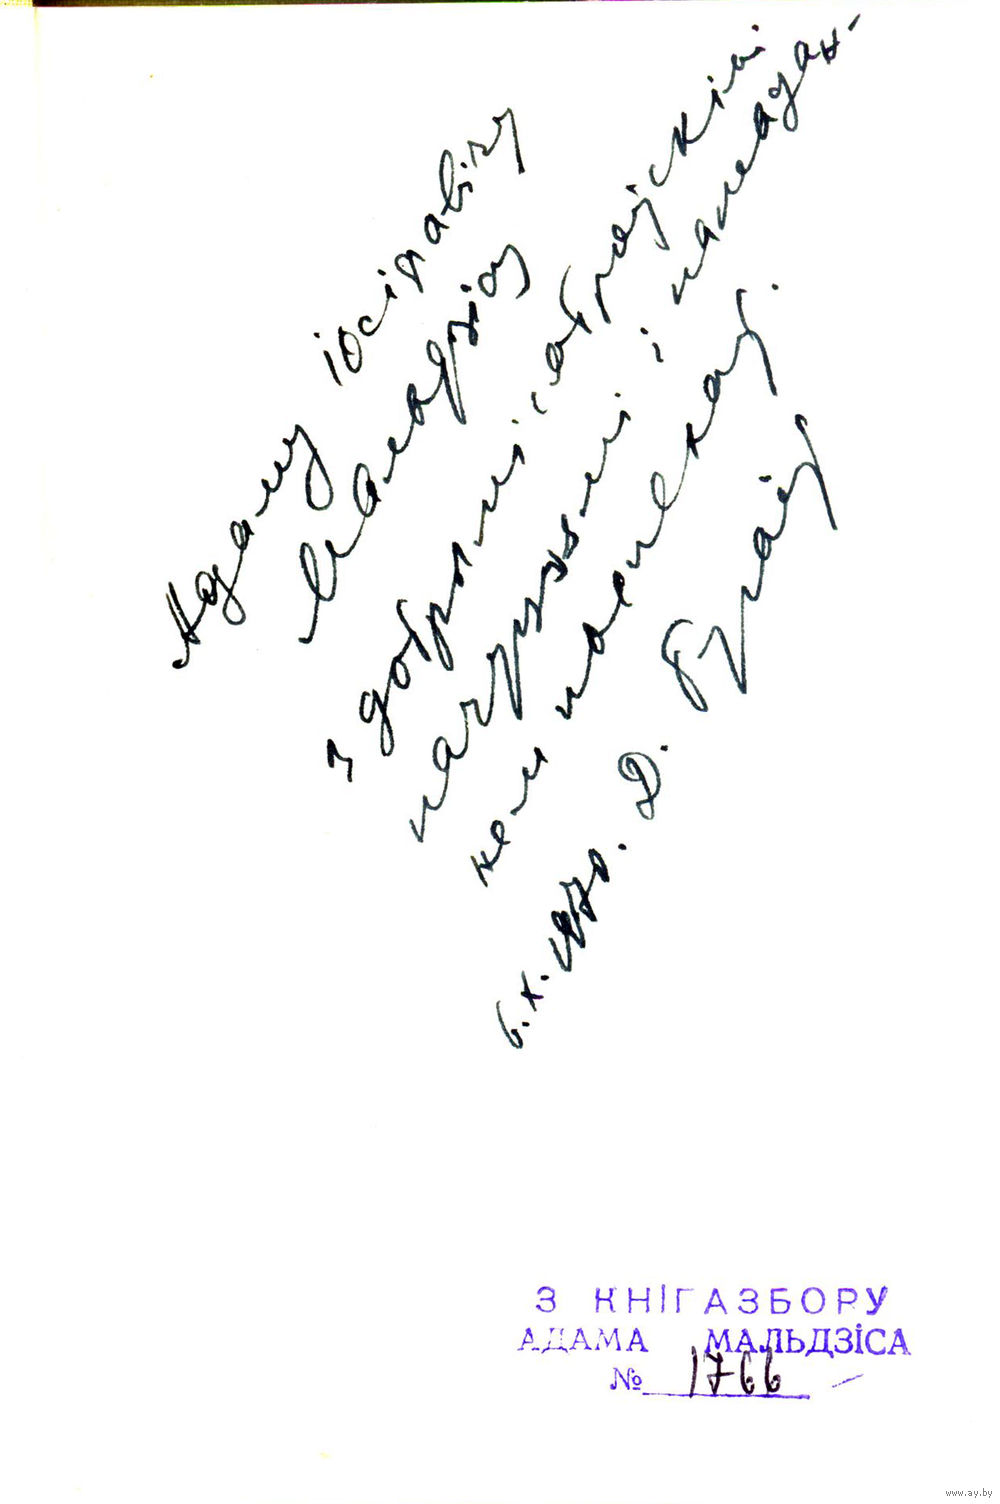 Адаму Іосіфавічу
Мальдзісу
з добрымі сяброўскімі
пачуццямі і пажадан-
нем поспехаў.
6.X.1970. Д. Бугаёў
З КНІГАЗБОРУ
АДАМА МАЛЬДЗІСА
№ 1766
www.ay.by